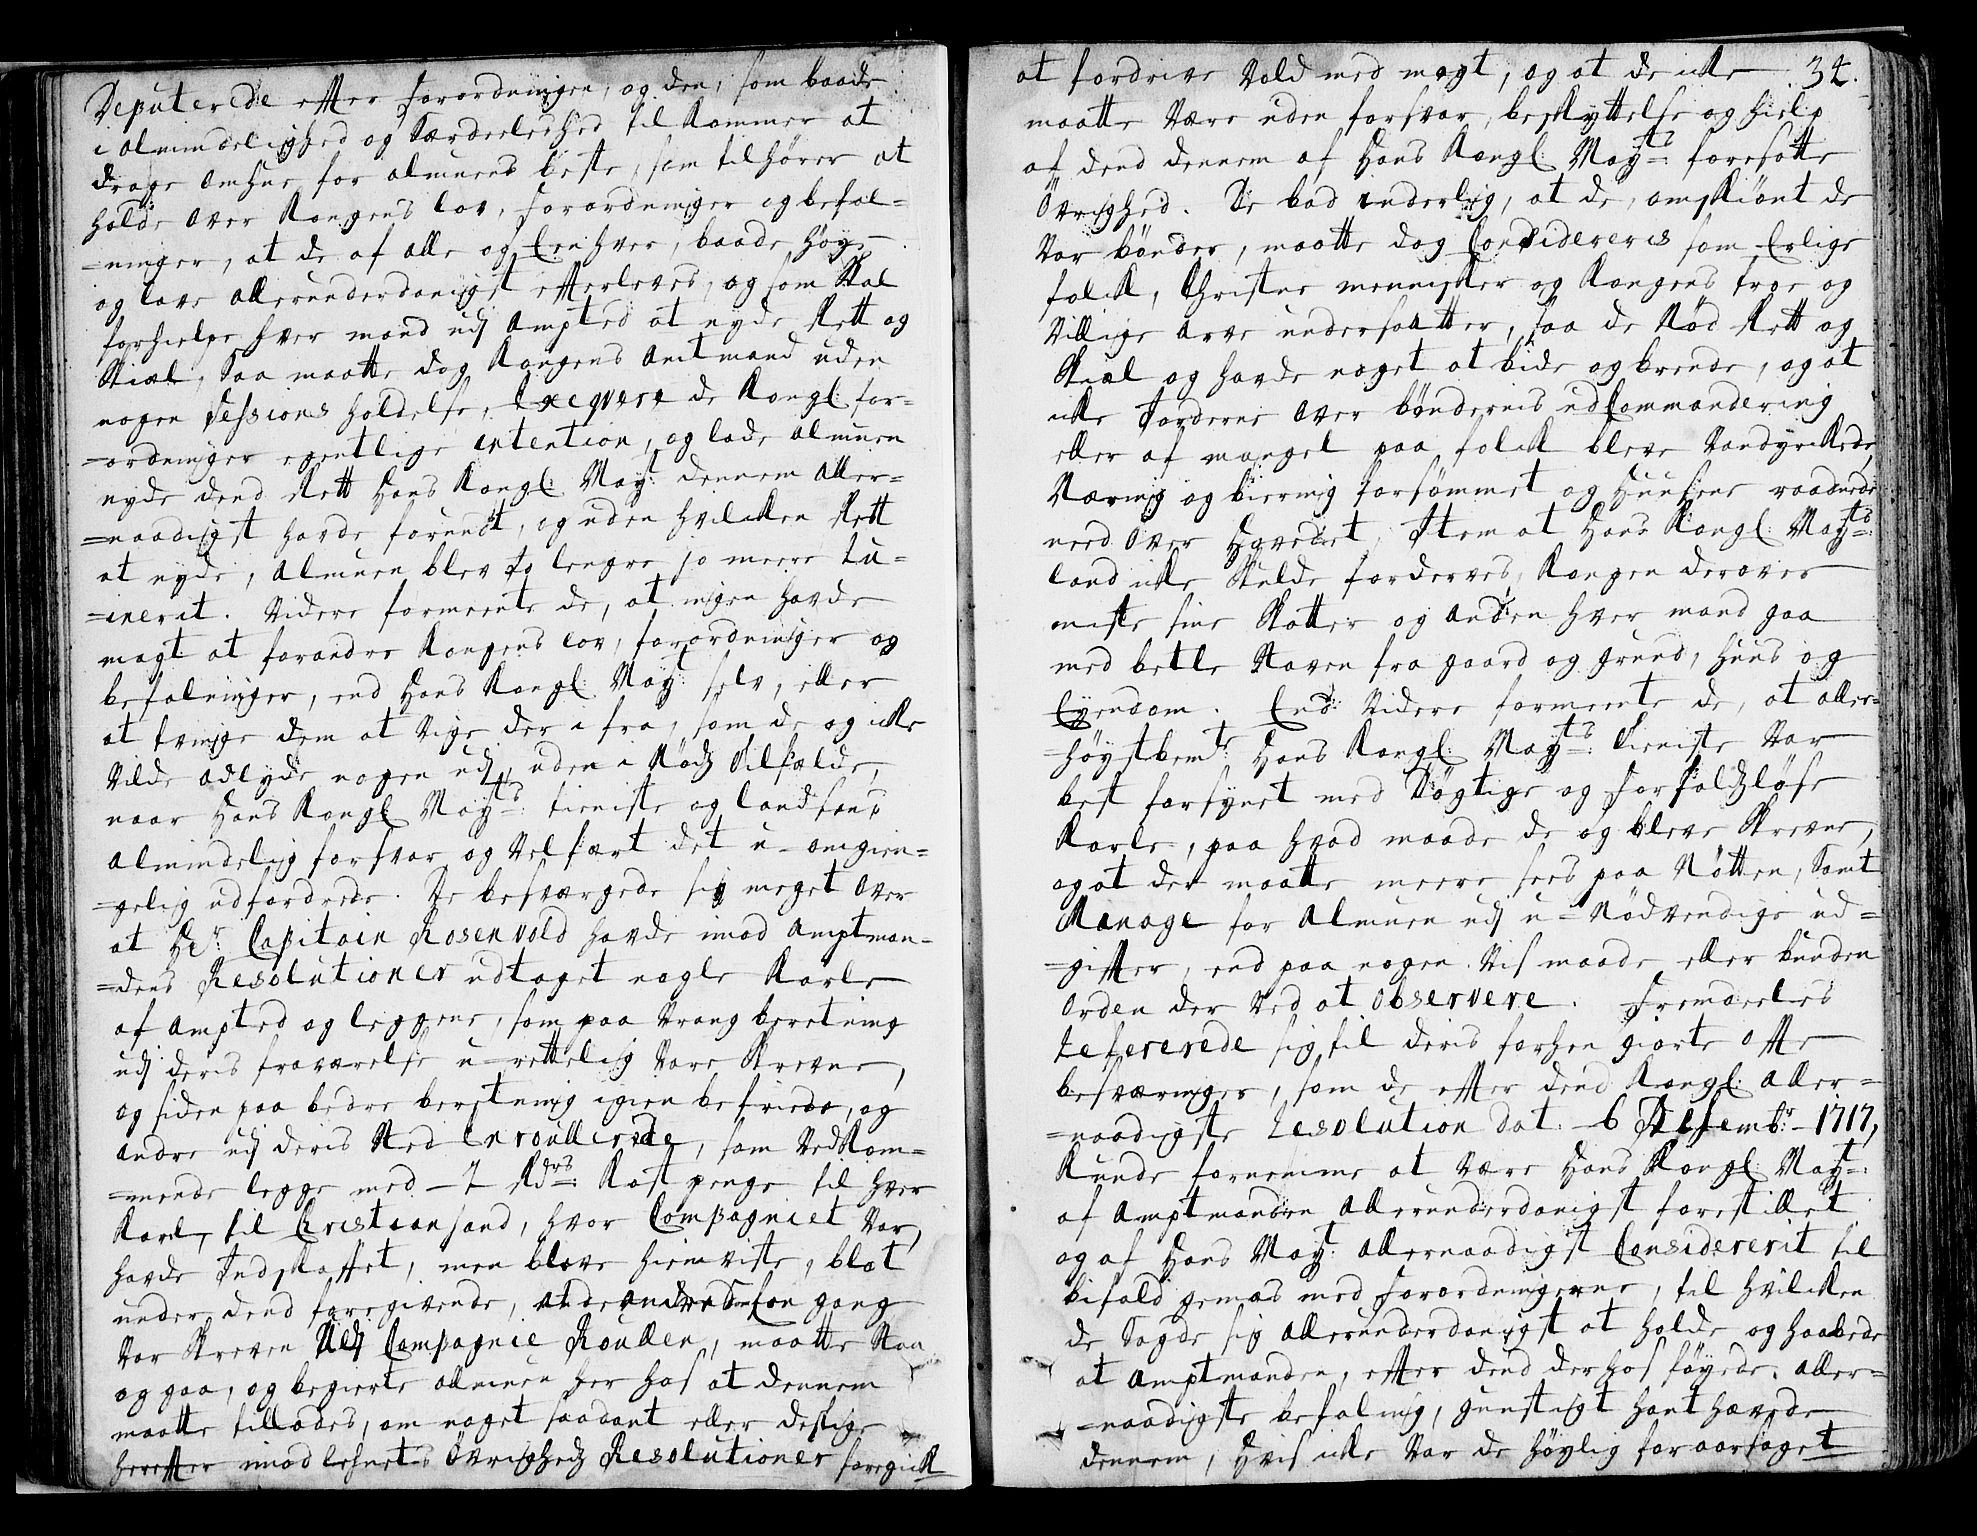 Deputerede effter forordningen, og den, som baade
i almindelighed og Særdeeleshed til kommer at
drage omhue for almuens beste, som tilhører at
holde over Kongens lov, forordninger og befal-
=ninger, at de af alle og Eenhver, baade høye
og lave allerunderdanigst effterleves, og som Skal
forhielpe hver mand udj ampted at nyde Rett og
Skiæl, Saa maatte dog Kongens amtmand uden
nogen Sessions holdelse, Exeqvere de Kongl. for-
=ordninger egentlige intention, og lade almuen
nyde dend Rett Hans Kongl: Mayt: dennem aller-
=naadigst hafde forundt, og uden hvilcken Rett
at nyde, almuen blev jo lengre jo meere ru-
=inerit. Videre formeente de, at ingen hafde
magt at forandre Kongens lov, forordninger og
befalninger, end Hans Kongl: Mayt: selv, eller
at tvinge dem at Vige der i fra, som de og icke
Vilde adlyde nogen udj, uden i Nødz tilfælde,
naar Hans Kongl Mayts: tieniste og landsens
almindelig forsvar og Velfært det u-omgien-
=gelig udfordrede. De besværgede sig meget over
at Hr: Capitain Rosenvold hafde imod amptman-
=dens Resolutioner udtaget nogle Karle
af ampted og leggene, som paa Vrang beretning
udj deris fraværelse u-rettelig Vare Skrevne,
og siden paa bedre beretning igien befriede, og
andre udj deris Sted Enroullerede, som Vedkom-
=mende legge med - 7 Rdrs: Kost penge til hver
Karl, til Christiansand, hvor Compagniet Var,
hafde Indskaffet, men bleve hiemviste, blot
under dend foregivende, at de en gang
Var Skreven Udj Compagnie Roullen, maatte Staa
og gaa, og begierte almuen her hos at dennem
maatte tillades, om noget saadant eller deslige
hereffter imod lehnets Øvrigheds Resolutioner foregick
at fordrive Vold med magt, og at de icke 34.
maatte Være uden forsvar, beskyttelse og hielp
af dend dennem af Hans Kongl: Mayts: foresatte
Øvrighed. De bad inderlig, at de, omskiønt de
Var bønder, maatte dog Considereris som Erlige
folck, Christne mennisker og Kongens troe og
Villige arve undersaatter, saa de Nød Rett og
Skiæl og hafde noget at bide og brende, og at
icke Jorderne over bøndernis udCommandering
eller af mangel paa folck bleve Vandyrckede,
Næring og biering forsømmet og Huusene raadnede
need over Hovedet, Item at Hans Kongl: Mayts:
land icke Skulde forderves, Kongen derover
miste sine Skatter og anden hver mand gaa
med betle Staven fra gaard og grund, huus og
Eyendom. End: Videre formeente de, at aller-
=høystbemte: Hans Kongl: Mayts: tieniste Var
best forsynet med Dögtige og forfaldzløse
Karle, paa hvad maade de og bleve Skrevne,
og at der maatte meere sees paa Nøtten, Samt
Menage for almuen udj u-Nødvendige ud-
=gifter, end paa nogen Vis maade eller bunden
orden der Ved at observere. Fremdeeles
refererede sig til deris forhen giorte offte
besværinger, som de effter dend Kongl: aller-
=naadigste Resolution dat. 6 Desembr: 1717,
Kunde fornemme at Være Hans Kongl: Mayt:
af amptmanden allerunderdanigst forestillet
og af Hans Mayt: allernaadigst Considererit til
bifald gemæs med forordningerne, til hvilcken
de Sagde sig allerunderdanigst at holde og haabede
at amptmanden, effter dend derhos føyede aller-
=naadigste befaling, gunstigt hanthævede
dennem, Hvis icke Var de høylig foraarsaget